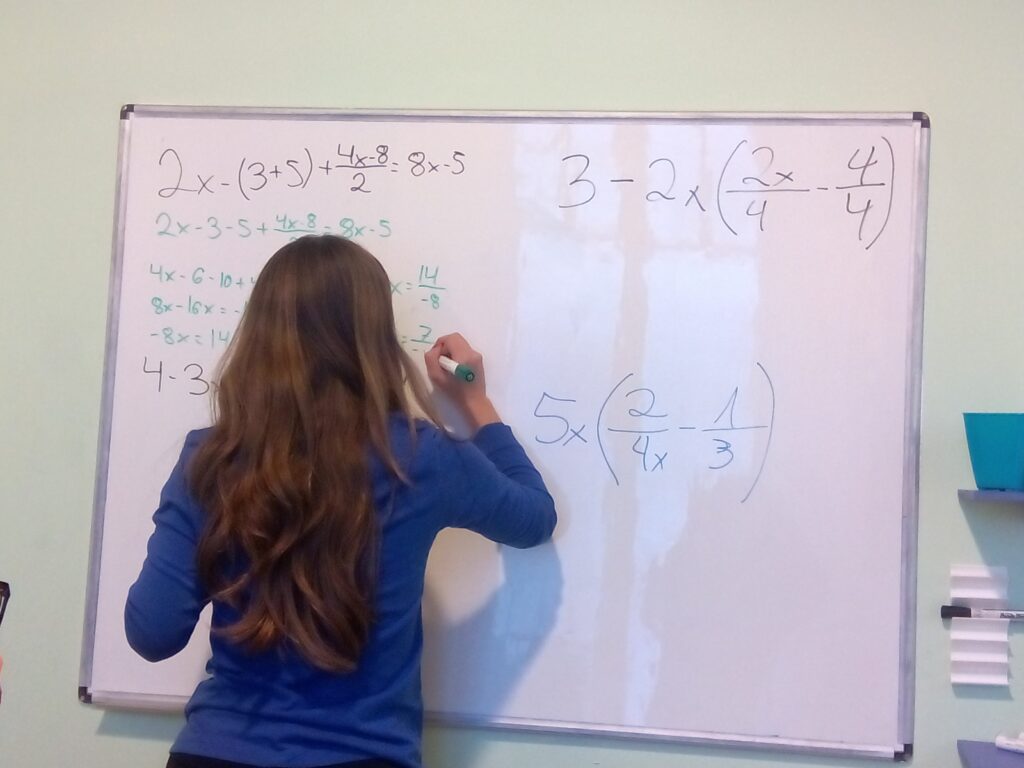 2x - (3+5) + \frac{4x-8}{2} = 8x-5
2x - 3 - 5 + \frac{4x-8}{} = 8x-5
4x - 6 - 10 +
x = \frac{14}{-8}
8x - 16x = -
-8x = 14
= \frac{7}{-}
4 - 3
3 - 2x \left( \frac{2x}{4} - \frac{4}{4} \right)
5x \left( \frac{2}{4x} - \frac{1}{3} \right)